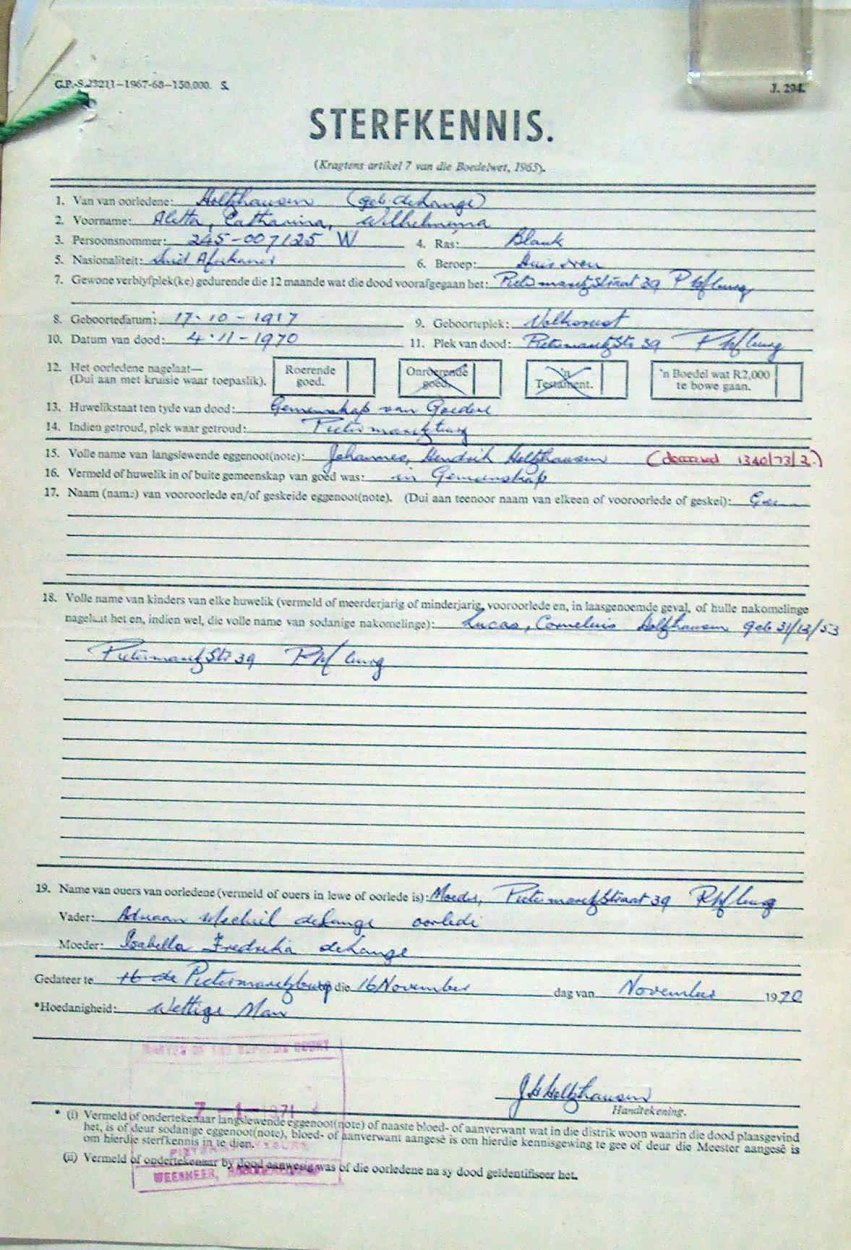 G.P.-S.23211—1967-68—150,000. S. J. 294.
STERFKENNIS.
(Kragtens artikel 7 van die Boedelwet, 1965).
1. Van van oorledene: Holtzhausen (geb. deLange)
2. Voorname: Aletta, Catharina, Wilhelmina
3. Persoonsnommer: 245-007125 W 4. Ras: Blank
5. Nasionaliteit: Suid Afrikaner 6. Beroep: Huisvrou
7. Gewone verblyfplek(ke) gedurende die 12 maande wat die dood voorafgegaan het: Pietermaritzstraat 39
8. Geboortedatum: 17-10-1917 9. Geboorteplek: Volksrust
10. Datum van dood: 4-11-1970 11. Plek van dood: Pietermaritzstr 39
12. Het oorledene nagelaat— Roerende goed. Onroerende goed. 'n Testament. 'n Boedel wat R2,000 te bowe gaan.
(Dui aan met kruisie waar toepaslik).
13. Huwelikstaat ten tyde van dood: Gemeenskap van Goedere
14. Indien getroud, plek waar getroud: Pietermaritzburg
15. Volle name van langslewende eggenoot(note): Johannes, Hendrik Holtzhausen (deceased 1340/73/2)
16. Vermeld of huwelik in of buite gemeenskap van goed was: in Gemeenskap
17. Naam (name) van vooroorlede en/of geskeide eggenoot(note). (Dui aan teenoor naam van elkeen of vooroorlede of geskei): Geen
18. Volle name van kinders van elke huwelik (vermeld of meerderjarig of minderjarig, vooroorlede en, in laasgenoemde geval, of hulle nakomelinge
nagelaat het en, indien wel, die volle name van sodanige nakomelinge): Lucas, Cornelius Holtzhausen geb 31/12/53
Pietermaritzstr 39
19. Name van ouers van oorledene (vermeld of ouers in lewe of oorlede is): Moeder, Pietermaritzstraat 39
Vader: Adriaan deLange oorlede
Moeder: Isabella Fredrika deLange
Gedateer te Pietermaritzburg die 16 November dag van November 1970
*Hoedanigheid: Wettige Man
MASTER OF THE SUPREME COURT
7-1-1971
JH Holtzhausen
Handtekening.
* (i) Vermeld of ondertekenaar langslewende eggenoot(note) of naaste bloed- of aanverwant wat in die distrik woon waarin die dood plaasgevind
het, is of deur sodanige eggenoot(note), bloed- of aanverwant aangesê is om hierdie kennisgewing te gee of deur die Meester aangesê is
om hierdie sterfkennis in te dien.
(ii) Vermeld of ondertekenaar by dood aanwesig was of die oorledene na sy dood geïdentifiseer het.